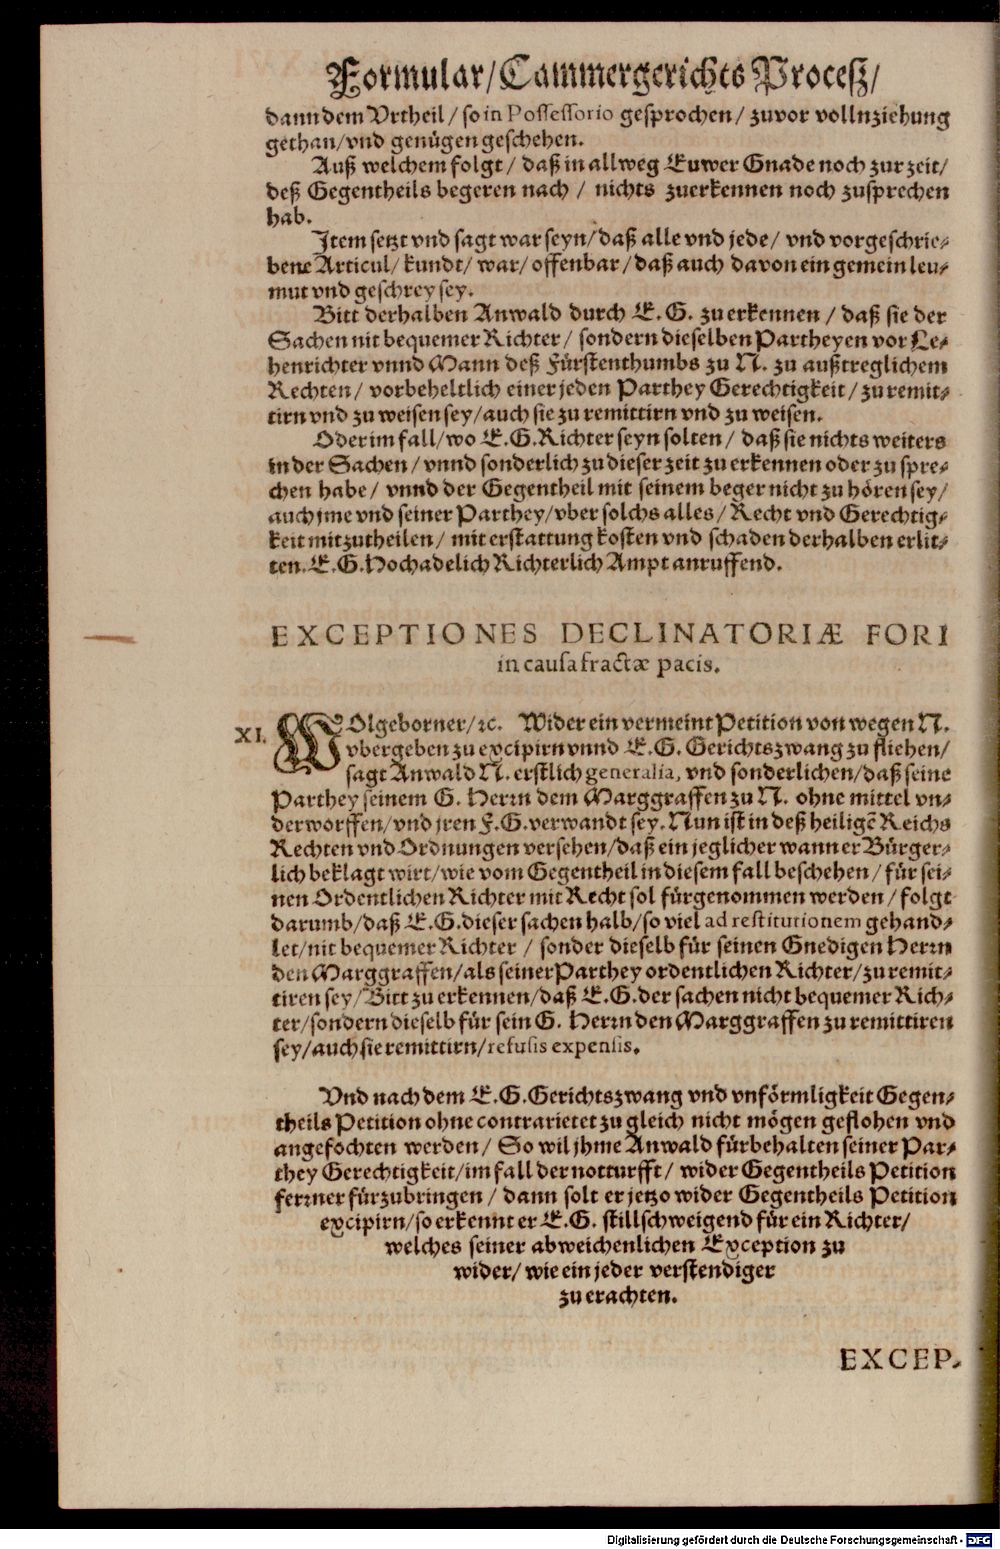 Formular/ Cammergerichts Procesz/
dann dem Vrtheil / so in Possessorio gesprochen / zuvor vollnziehung
gethan/ vnd genügen geschehen.
Auß welchem folgt / daß in allweg Euwer Gnade noch zur zeit/
deß Gegentheils begeren nach / nichts zuerkennen noch zusprechen
hab.
Jtem setzt vnd sagt war seyn/ daß alle vnd jede/ vnd vorgeschrie-
bene Articul/ kundt/ war/ offenbar/ daß auch davon ein gemein leu-
mut vnd geschrey sey.
Bitt derhalben Anwald durch E. G. zu erkennen / daß sie der
Sachen nit bequemer Richter / sondern dieselben Partheyen vor Le-
henrichter vnnd Mann deß Fürstenthumbs zu N. zu außtreglichem
Rechten / vorbeheltlich einer jeden Parthey Gerechtigkeit / zu remit-
tirn vnd zu weisen sey/ auch sie zu remittirn vnd zu weisen.
Oder im fall/ wo E. G. Richter seyn solten / daß sie nichts weiters
in der Sachen / vnnd sonderlich zu dieser zeit zu erkennen oder zu spre-
chen habe / vnnd der Gegentheil mit seinem beger nicht zu hören sey/
auch jme vnd seiner Parthey/ vber solchs alles / Recht vnd Gerechtig-
keit mitzutheilen / mit erstattung kosten vnd schaden derhalben erlit-
ten. E. G. Hochadelich Richterlich Ampt anruffend.
EXCEPTIONES DECLINATORIÆ FORI
in causa fractæ pacis.
XI. WOlgeborner/ ꝛc. Wider ein vermeint Petition von wegen N.
vbergeben zu excipirn vnnd E. G. Gerichtszwang zu fliehen/
sagt Anwald N. erstlich generalia, vnd sonderlichen/ daß seine
Parthey seinem G. Herrn dem Marggraffen zu N. ohne mittel vn-
derworffen/ vnd jren F. G. verwandt sey. Nun ist in deß heiligē Reichs
Rechten vnd Ordnungen versehen/ daß ein jeglicher wann er Bürger-
lich beklagt wirt/ wie vom Gegentheil in diesem fall beschehen / für sei-
nen Ordentlichen Richter mit Recht sol fürgenommen werden / folgt
darumb/ daß E. G. dieser sachen halb/ so viel ad restitutionem gehand-
let/ nit bequemer Richter / sonder dieselb für seinen Gnedigen Herrn
den Marggraffen/ als seiner Parthey ordentlichen Richter/ zu remit-
tiren sey/ Bitt zu erkennen/ daß E. G. der sachen nicht bequemer Rich-
ter/ sondern dieselb für sein G. Herrn den Marggraffen zu remittiren
sey/ auch sie remittirn/ refusis expensis.
Vnd nach dem E. G. Gerichtszwang vnd vnförmligkeit Gegen-
theils Petition ohne contrarietet zu gleich nicht mögen geflohen vnd
angefochten werden / So wil jhme Anwald fürbehalten seiner Par-
they Gerechtigkeit/ im fall der notturfft / wider Gegentheils Petition
ferrner fürzubringen / dann solt er jetzo wider Gegentheils Petition
excipirn/ so erkennt er E. G. stillschweigend für ein Richter/
welches seiner abweichenlichen Exception zu
wider/ wie ein jeder verstendiger
zu erachten.
EXCEP-
Digitalisierung gefördert durch die Deutsche Forschungsgemeinschaft - DFG